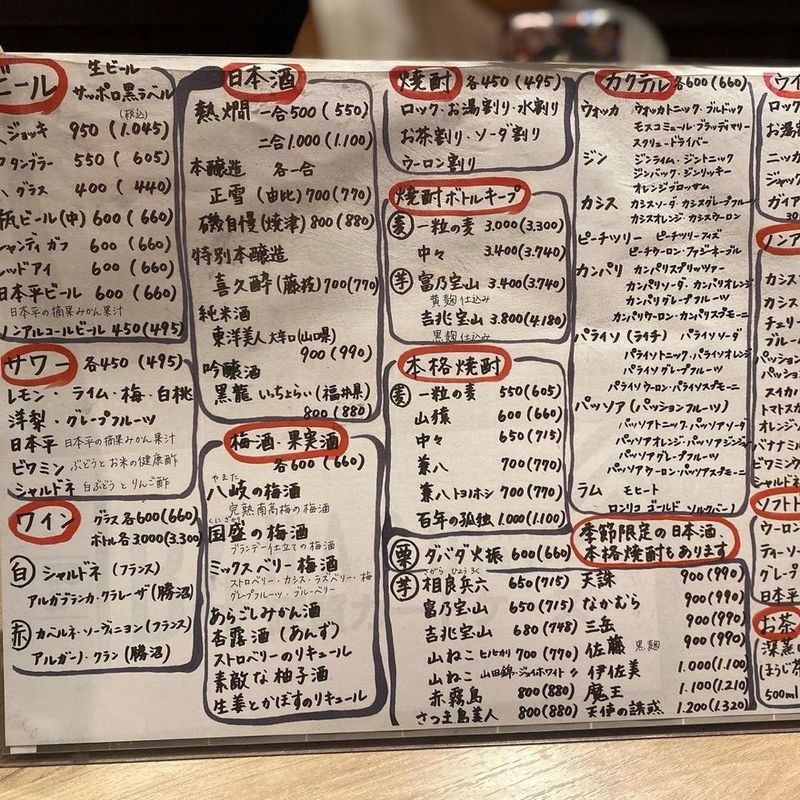 ビール
生ビール
サッポロ黒ラベル
(税込)
ジョッキ 950 (1.045)
タンブラー 550 (605)
グラス 400 (440)
瓶ビール(中) 600 (660)
シャンディガフ 600 (660)
レッドアイ 600 (660)
日本平ビール 600 (660)
日本平の摘果みかん果汁
ノンアルコールビール 450 (495)
サワー 各450 (495)
レモン・ライム・梅・白桃
洋梨・グレープフルーツ
日本平 日本平の摘果みかん果汁
ビワミン ぶどうとお米の健康酢
シャルドネ 白ぶどうとりんご酢
ワイン グラス各600(660)
ボトル各3000(3.300)
白 シャルドネ (フランス)
アルガブランカ・クラレーザ(勝沼)
赤 カベルネ・ソーヴィニヨン(フランス)
アルガーノ・クラン(勝沼)
日本酒
熱燗 一合500 (550)
二合1.000 (1.100)
本醸造 各一合
正雪 (由比) 700 (770)
磯自慢 (焼津) 800 (880)
特別本醸造
喜久酔 (藤枝) 700 (770)
純米酒
東洋美人 大辛口(山口県)
900 (990)
吟醸酒
黒龍 いっちょらい (福井県)
800 (880)
梅酒・果実酒
各600 (660)
やまた
八岐の梅酒
完熟南高梅の梅酒
くにざかり
国盛の梅酒
ブランデー仕立ての梅酒
ミックスベリー梅酒
ストロベリー・カシス・ラズベリー・梅
グレープフルーツ・ブルーベリー
あらごしみかん酒
杏露酒 (あんず)
ストロベリーのリキュール
素敵な柚子酒
生姜とかぼすのリキュール
焼酎 各450 (495)
ロック・お湯割り・水割り
お茶割り・ソーダ割り
ウーロン割り
焼酎ボトルキープ
麦 一粒の麦 3.000 (3.300)
中々 3.400 (3.740)
芋 富乃宝山 3.400 (3.740)
黄麹仕込み
吉兆宝山 3.800 (4.180)
黒麹仕込み
本格焼酎
麦 一粒の麦 550 (605)
山猿 600 (660)
中々 650 (715)
兼八 700 (770)
兼八トヨノホシ 700 (770)
百年の孤独 1.000 (1.100)
栗 ダバダ火振 600 (660)
さがら ひょうろく
芋 相良兵六 650 (715)
富乃宝山 650 (715)
吉兆宝山 680 (748)
山ねこ ヒノヒカリ 700 (770)
山ねこ 山田錦・ジョイホワイト 〃
赤霧島 800 (880)
さつま島美人 800 (880)
カクテル 各600 (660)
ウォッカ ウォッカトニック・ブルドック
モスコミュール・ブラッディマリー
スクリュードライバー
ジン ジンライム・ジントニック
ジンバック・ジンリッキー
オレンジブロッサム
カシス カシスソーダ・カシスグレープフルーツ
カシスオレンジ・カシスウーロン
ピーチツリー ピーチツリーフィズ
ピーチウーロン・ファジーネーブル
カンパリ カンパリスプリッツァー
カンパリソーダ・カンパリオレンジ
カンパリグレープフルーツ
カンパリウーロン・カンパリスプモーニ
パライソ (ライチ) パライソソーダ
パライソトニック・パライソオレンジ
パライソグレープフルーツ
パライソウーロン・パライソスプモーニ
パッソア (パッションフルーツ)
パッソアトニック・パッソアソーダ
パッソアオレンジ・パッソアジンジャー
パッソアグレープフルーツ
パッソアウーロン・パッソアスプモーニ
ラム モヒート
ロンリコ ゴールド ソルクバーノ
季節限定の日本酒、
本格焼酎もあります
天誅 900 (990)
なかむら 900 (990)
三岳 900 (990)
佐藤 黒麹 900 (990)
伊佐美 1.000 (1.100)
魔王 1.100 (1.210)
天使の誘惑 1.200 (1.320)
ウイ
ロック
お湯
ニッカ
ジャック
ガイア
ノン
カシス
カシス
チェリー
ブル
パッション
パッション
スカイ
トマト
オレン
バナナミル
ビワミン
シャルドネ
ソフト
ウーロン
ティーソー
グレープ
日本平
お茶
深蒸し
ほうじ茶
500ml